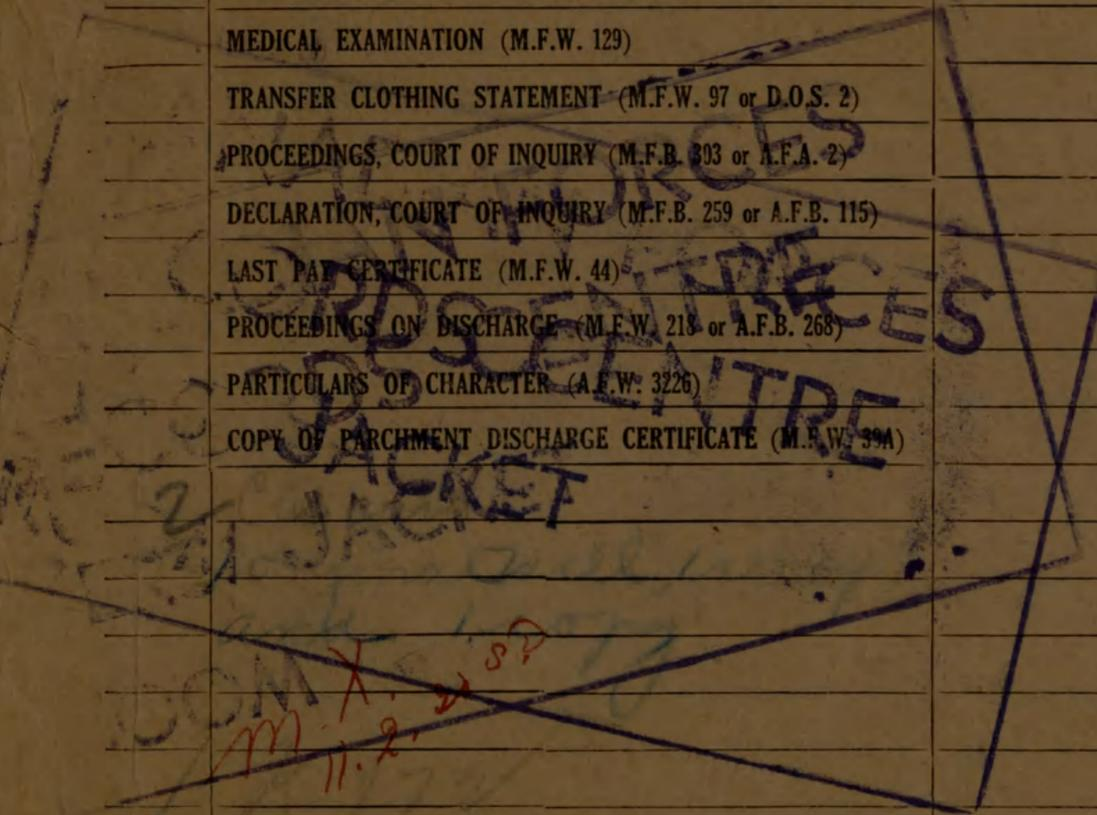 MEDICAL EXAMINATION (M.F.W. 129)
TRANSFER CLOTHING STATEMENT (M.F.W. 97 or D.O.S. 2)
PROCEEDINGS, COURT OF INQUIRY (M.F.B. 303 or A.F.A. 2)
DECLARATION, COURT OF INQUIRY (M.F.B. 259 or A.F.B. 115)
LAST PAY CERTIFICATE (M.F.W. 44)
PROCEEDINGS ON DISCHARGE (M.F.W. 218 or A.F.B. 268)
PARTICULARS OF CHARACTER (A.F.W. 3226)
COPY OF PARCHMENT DISCHARGE CERTIFICATE (M.F.W. 39A)
FORCES
CENTRE
CENTRE
JACKET
JACKET
2
copy
M.X.
11.2.